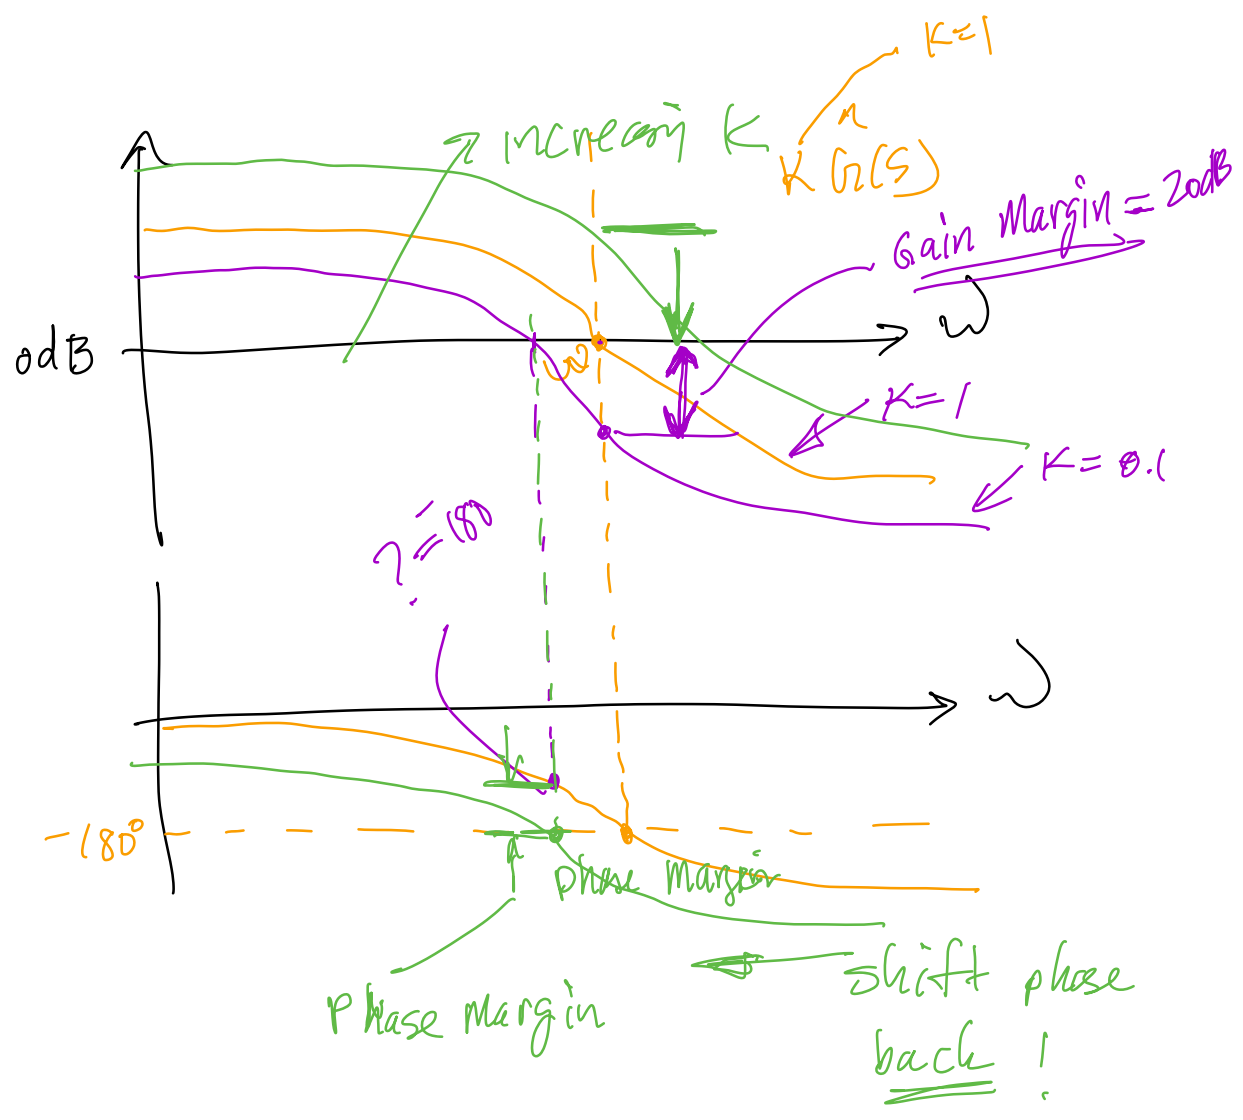 K=1
increasing K
K G(s)
Gain Margin = 20dB
ω
0dB
ω
K=1
K= 0.1
?=180
ω
-180°
phase margin
Phase Margin
shift phase
back !